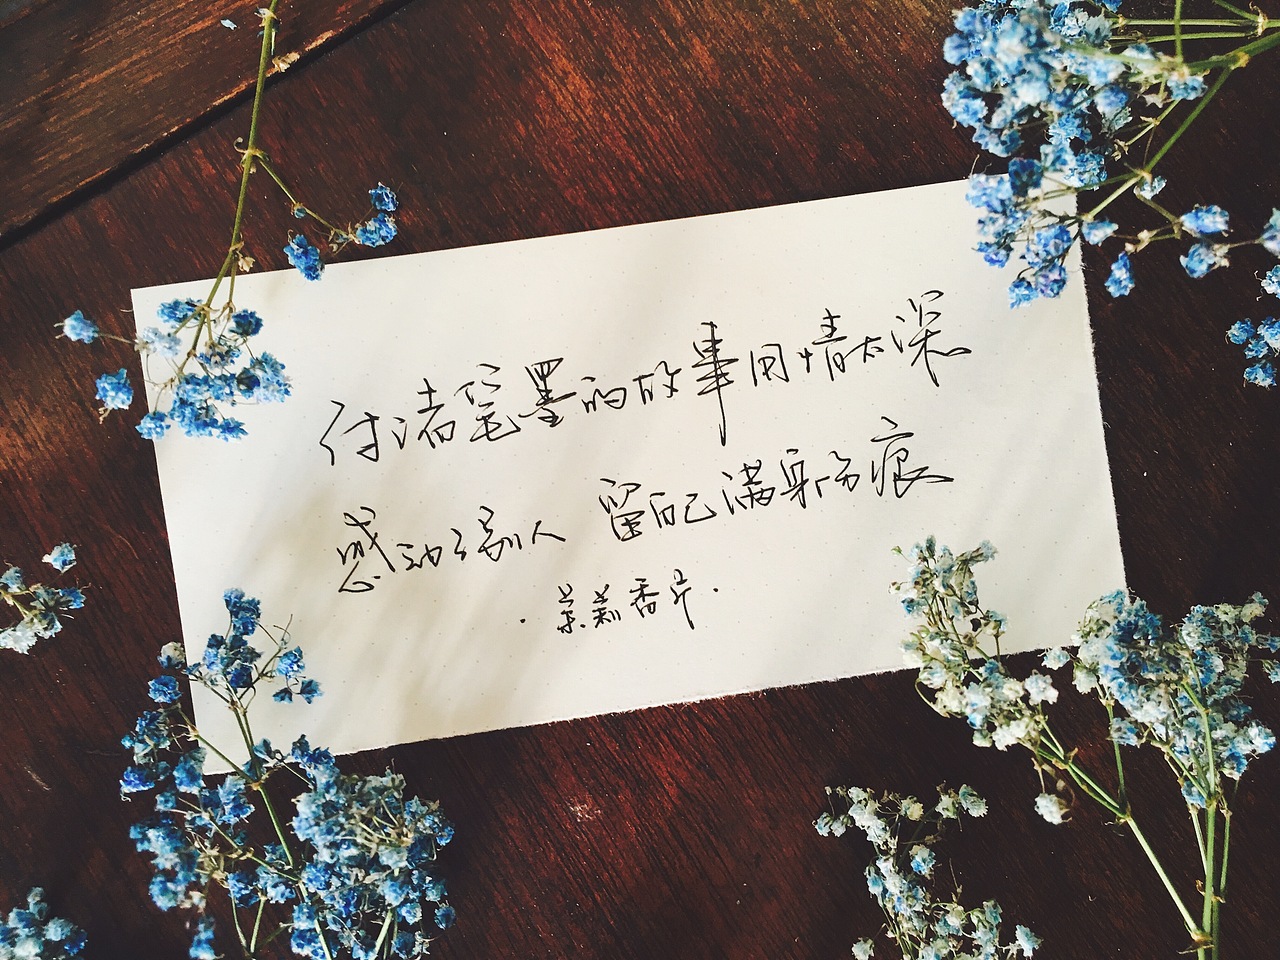 付诸笔墨的故事用情太深
感动了别人 留自己满身伤痕
·茉莉香片·